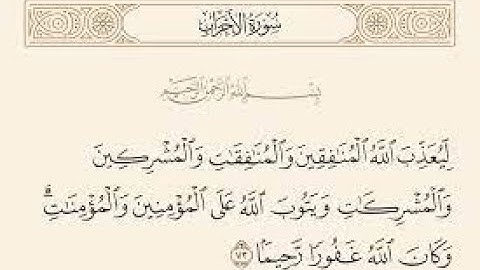 سُورَةُ الأَحْزَابِ
بِسْمِ اللَّهِ الرَّحْمَٰنِ الرَّحِيمِ
لِّيُعَذِّبَ ٱللَّهُ ٱلْمُنَٰفِقِينَ وَٱلْمُنَٰفِقَٰتِ وَٱلْمُشْرِكِينَ
وَٱلْمُشْرِكَٰتِ وَيَتُوبَ ٱللَّهُ عَلَى ٱلْمُؤْمِنِينَ وَٱلْمُؤْمِنَٰتِۗ
وَكَانَ ٱللَّهُ غَفُورًا رَّحِيمًا ۝٧٣